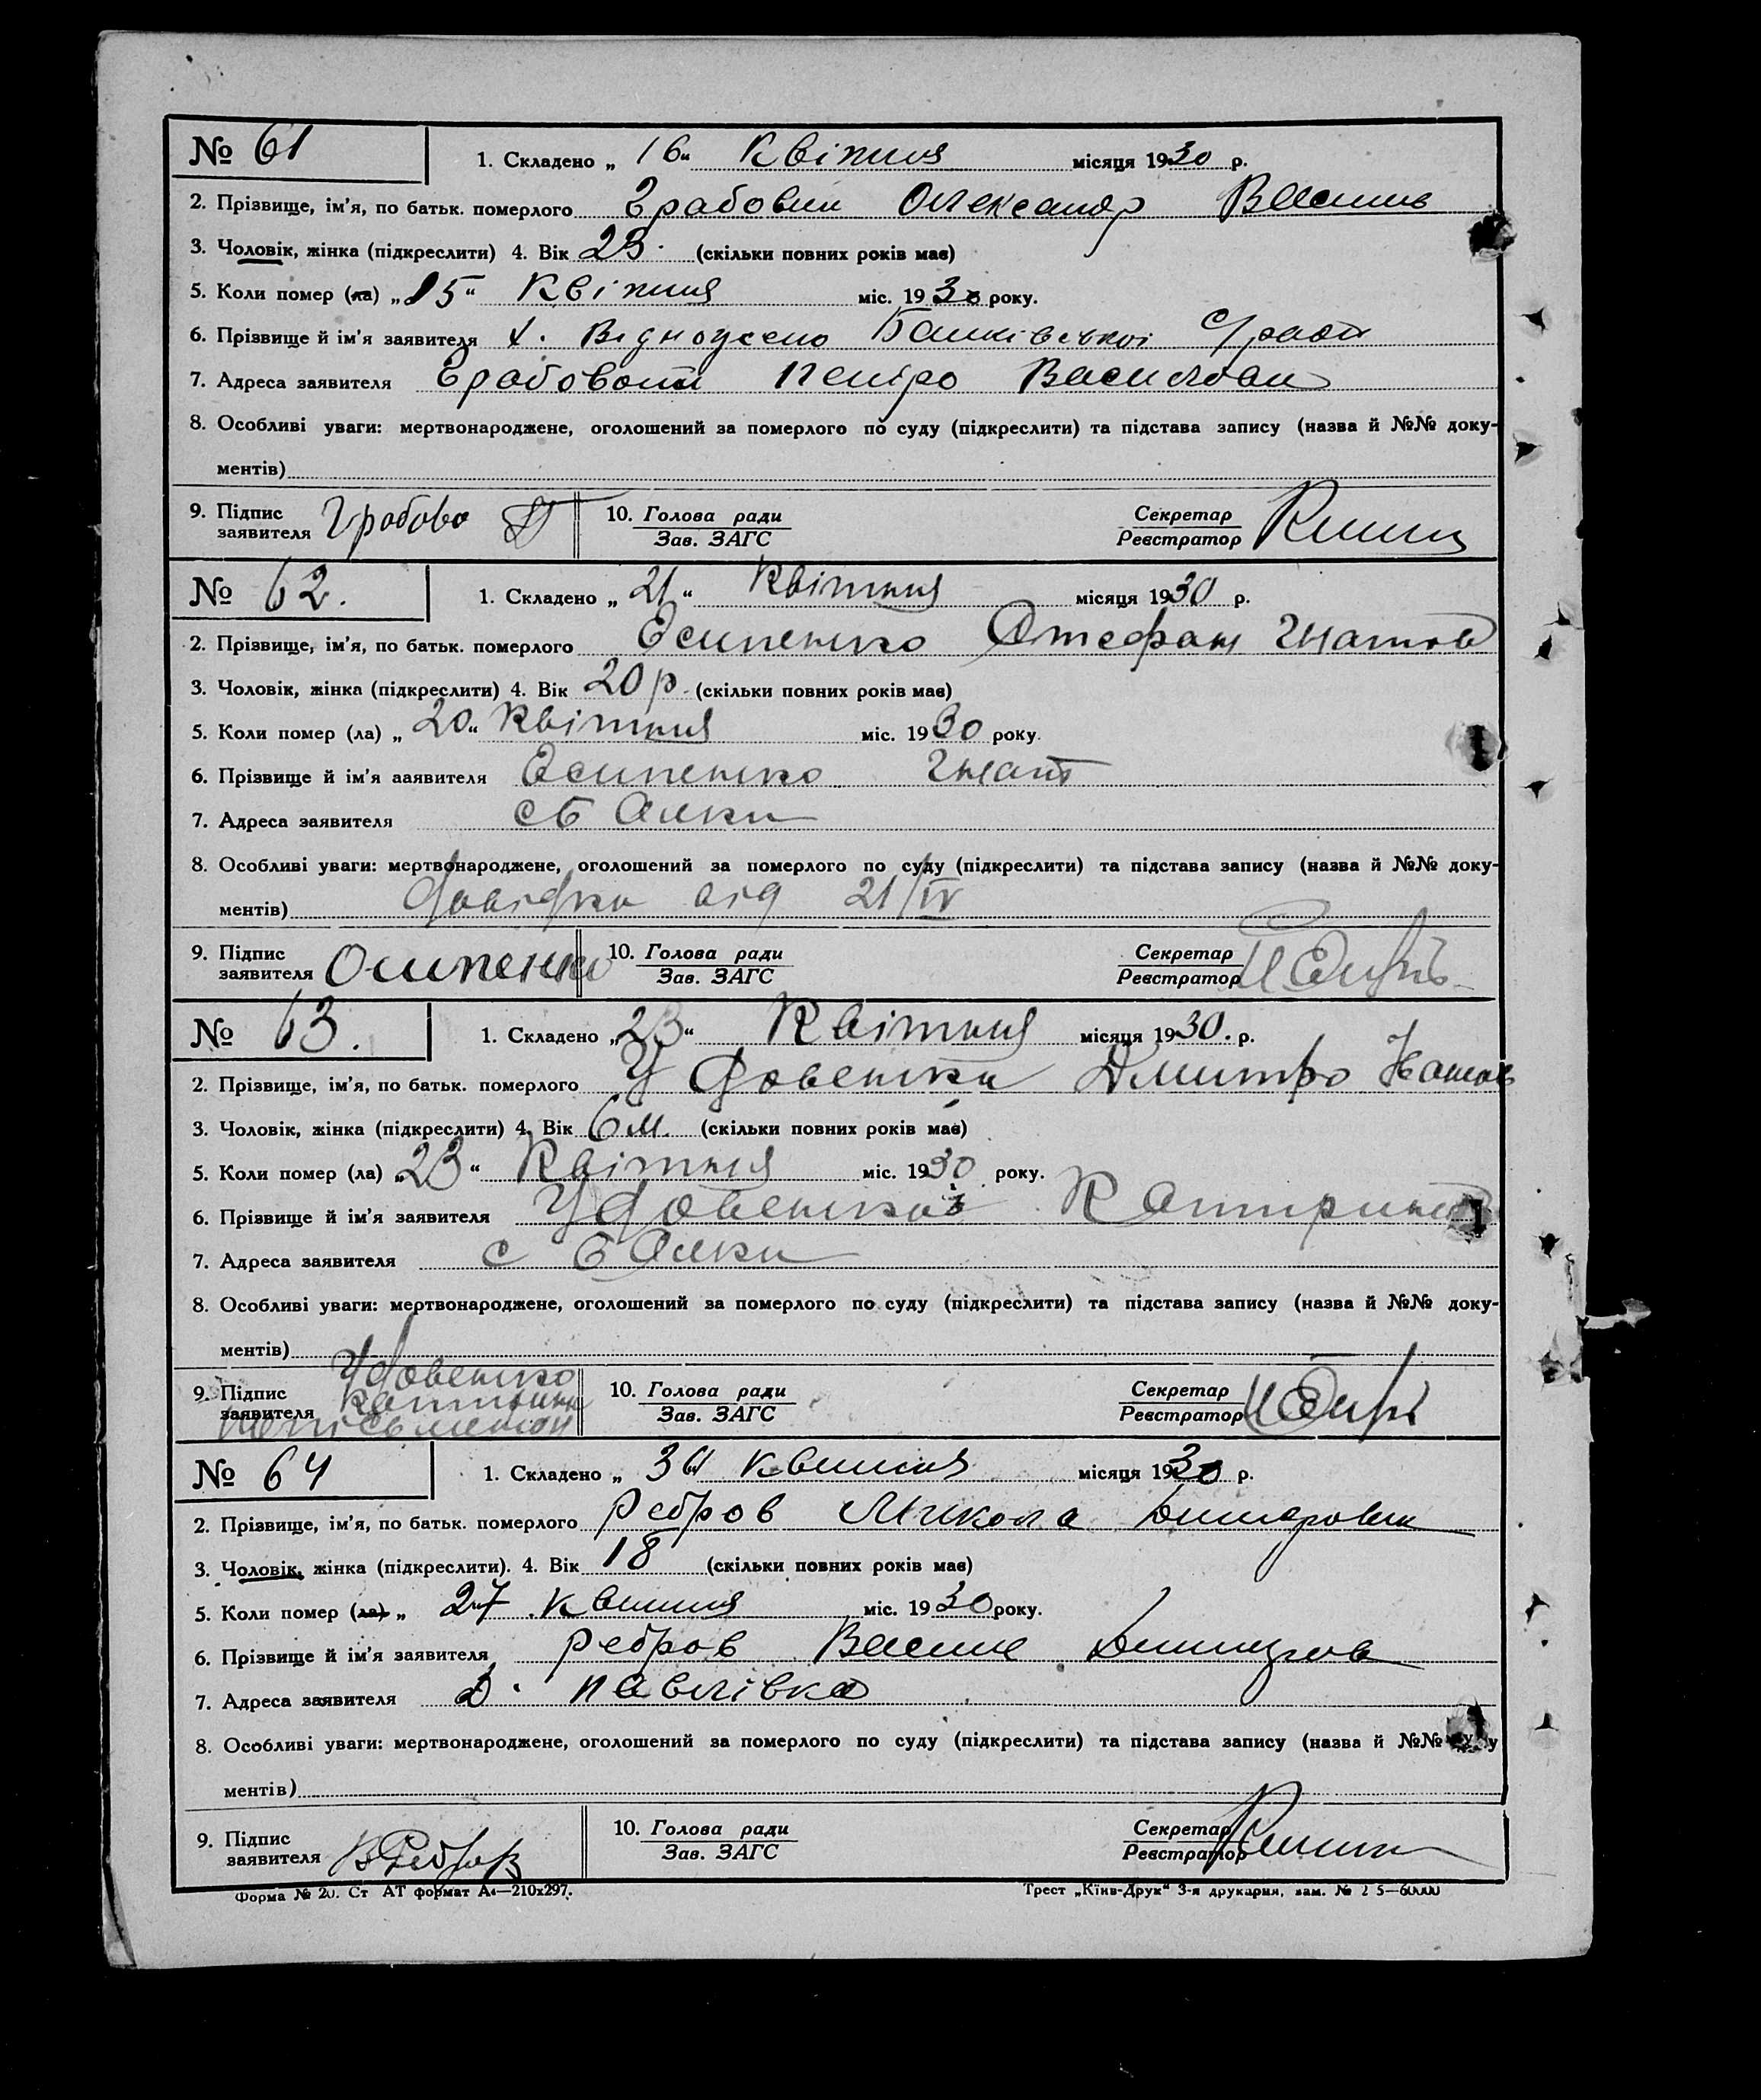 № 61
1. Складено „ 16 “ Квітня місяця 1930 р.
2. Прізвище, ім'я, по батьк. померлого Грабовий Олександр Василів
3. Чоловік, жінка (підкреслити) 4. Вік 23. (скільки повних років має)
5. Коли помер (ла) „ 15 “ Квітня міс. 1930 року.
6. Прізвище й ім'я заявителя х.
7. Адреса заявителя Петро Васильов
8. Особливі уваги: мертвонароджене, оголошений за померлого по суду (підкреслити) та підстава запису (назва й №№ доку-
ментів)
9. Підпис заявителя Грабово
10. Голова ради
Зав. ЗАГС
Секретар
Реєстратор
№ 62.
1. Складено „ 21 “ Квітня місяця 1930 р.
2. Прізвище, ім'я, по батьк. померлого Есипенко Стефан Гнатов
3. Чоловік, жінка (підкреслити) 4. Вік 20 р. (скільки повних років має)
5. Коли помер (ла) „ 20 “ Квітня міс. 1930 року.
6. Прізвище й ім'я заявителя Есипенко Гнат
7. Адреса заявителя с Балки
8. Особливі уваги: мертвонароджене, оголошений за померлого по суду (підкреслити) та підстава запису (назва й №№ доку-
ментів) Довідка від 21/IV
9. Підпис заявителя Осипенко
10. Голова ради
Зав. ЗАГС
Секретар
Реєстратор
№ 63.
1. Складено „ 23 “ Квітня місяця 1930. р.
2. Прізвище, ім'я, по батьк. померлого Удовенко Дмитро
3. Чоловік, жінка (підкреслити) 4. Вік 6 м. (скільки повних років має)
5. Коли помер (ла) „ 23 “ Квітня міс. 1930 року.
6. Прізвище й ім'я заявителя Удовенко Катрина
7. Адреса заявителя с Балки
8. Особливі уваги: мертвонароджене, оголошений за померлого по суду (підкреслити) та підстава запису (назва й №№ доку-
ментів)
9. Підпис заявителя Удовенко
10. Голова ради
Зав. ЗАГС
Секретар
Реєстратор
№ 64
1. Складено „ 30 “ квітня місяця 1930 р.
2. Прізвище, ім'я, по батьк. померлого Ребров Микола Дмитрович
3. Чоловік, жінка (підкреслити). 4. Вік 18 (скільки повних років має)
5. Коли помер (ла) „ 27 квітня міс. 1930 року.
6. Прізвище й ім'я заявителя Ребров Василь Дмитров
7. Адреса заявителя д. Павлівка
8. Особливі уваги: мертвонароджене, оголошений за померлого по суду (підкреслити) та підстава запису (назва й №№
ментів)
9. Підпис заявителя В Ребров
10. Голова ради
Зав. ЗАГС
Секретар
Реєстратор
Форма № 20. Ст АТ формат А4—210х297.
Трест „Київ-Друк“ 3-я друкарня, зам. №